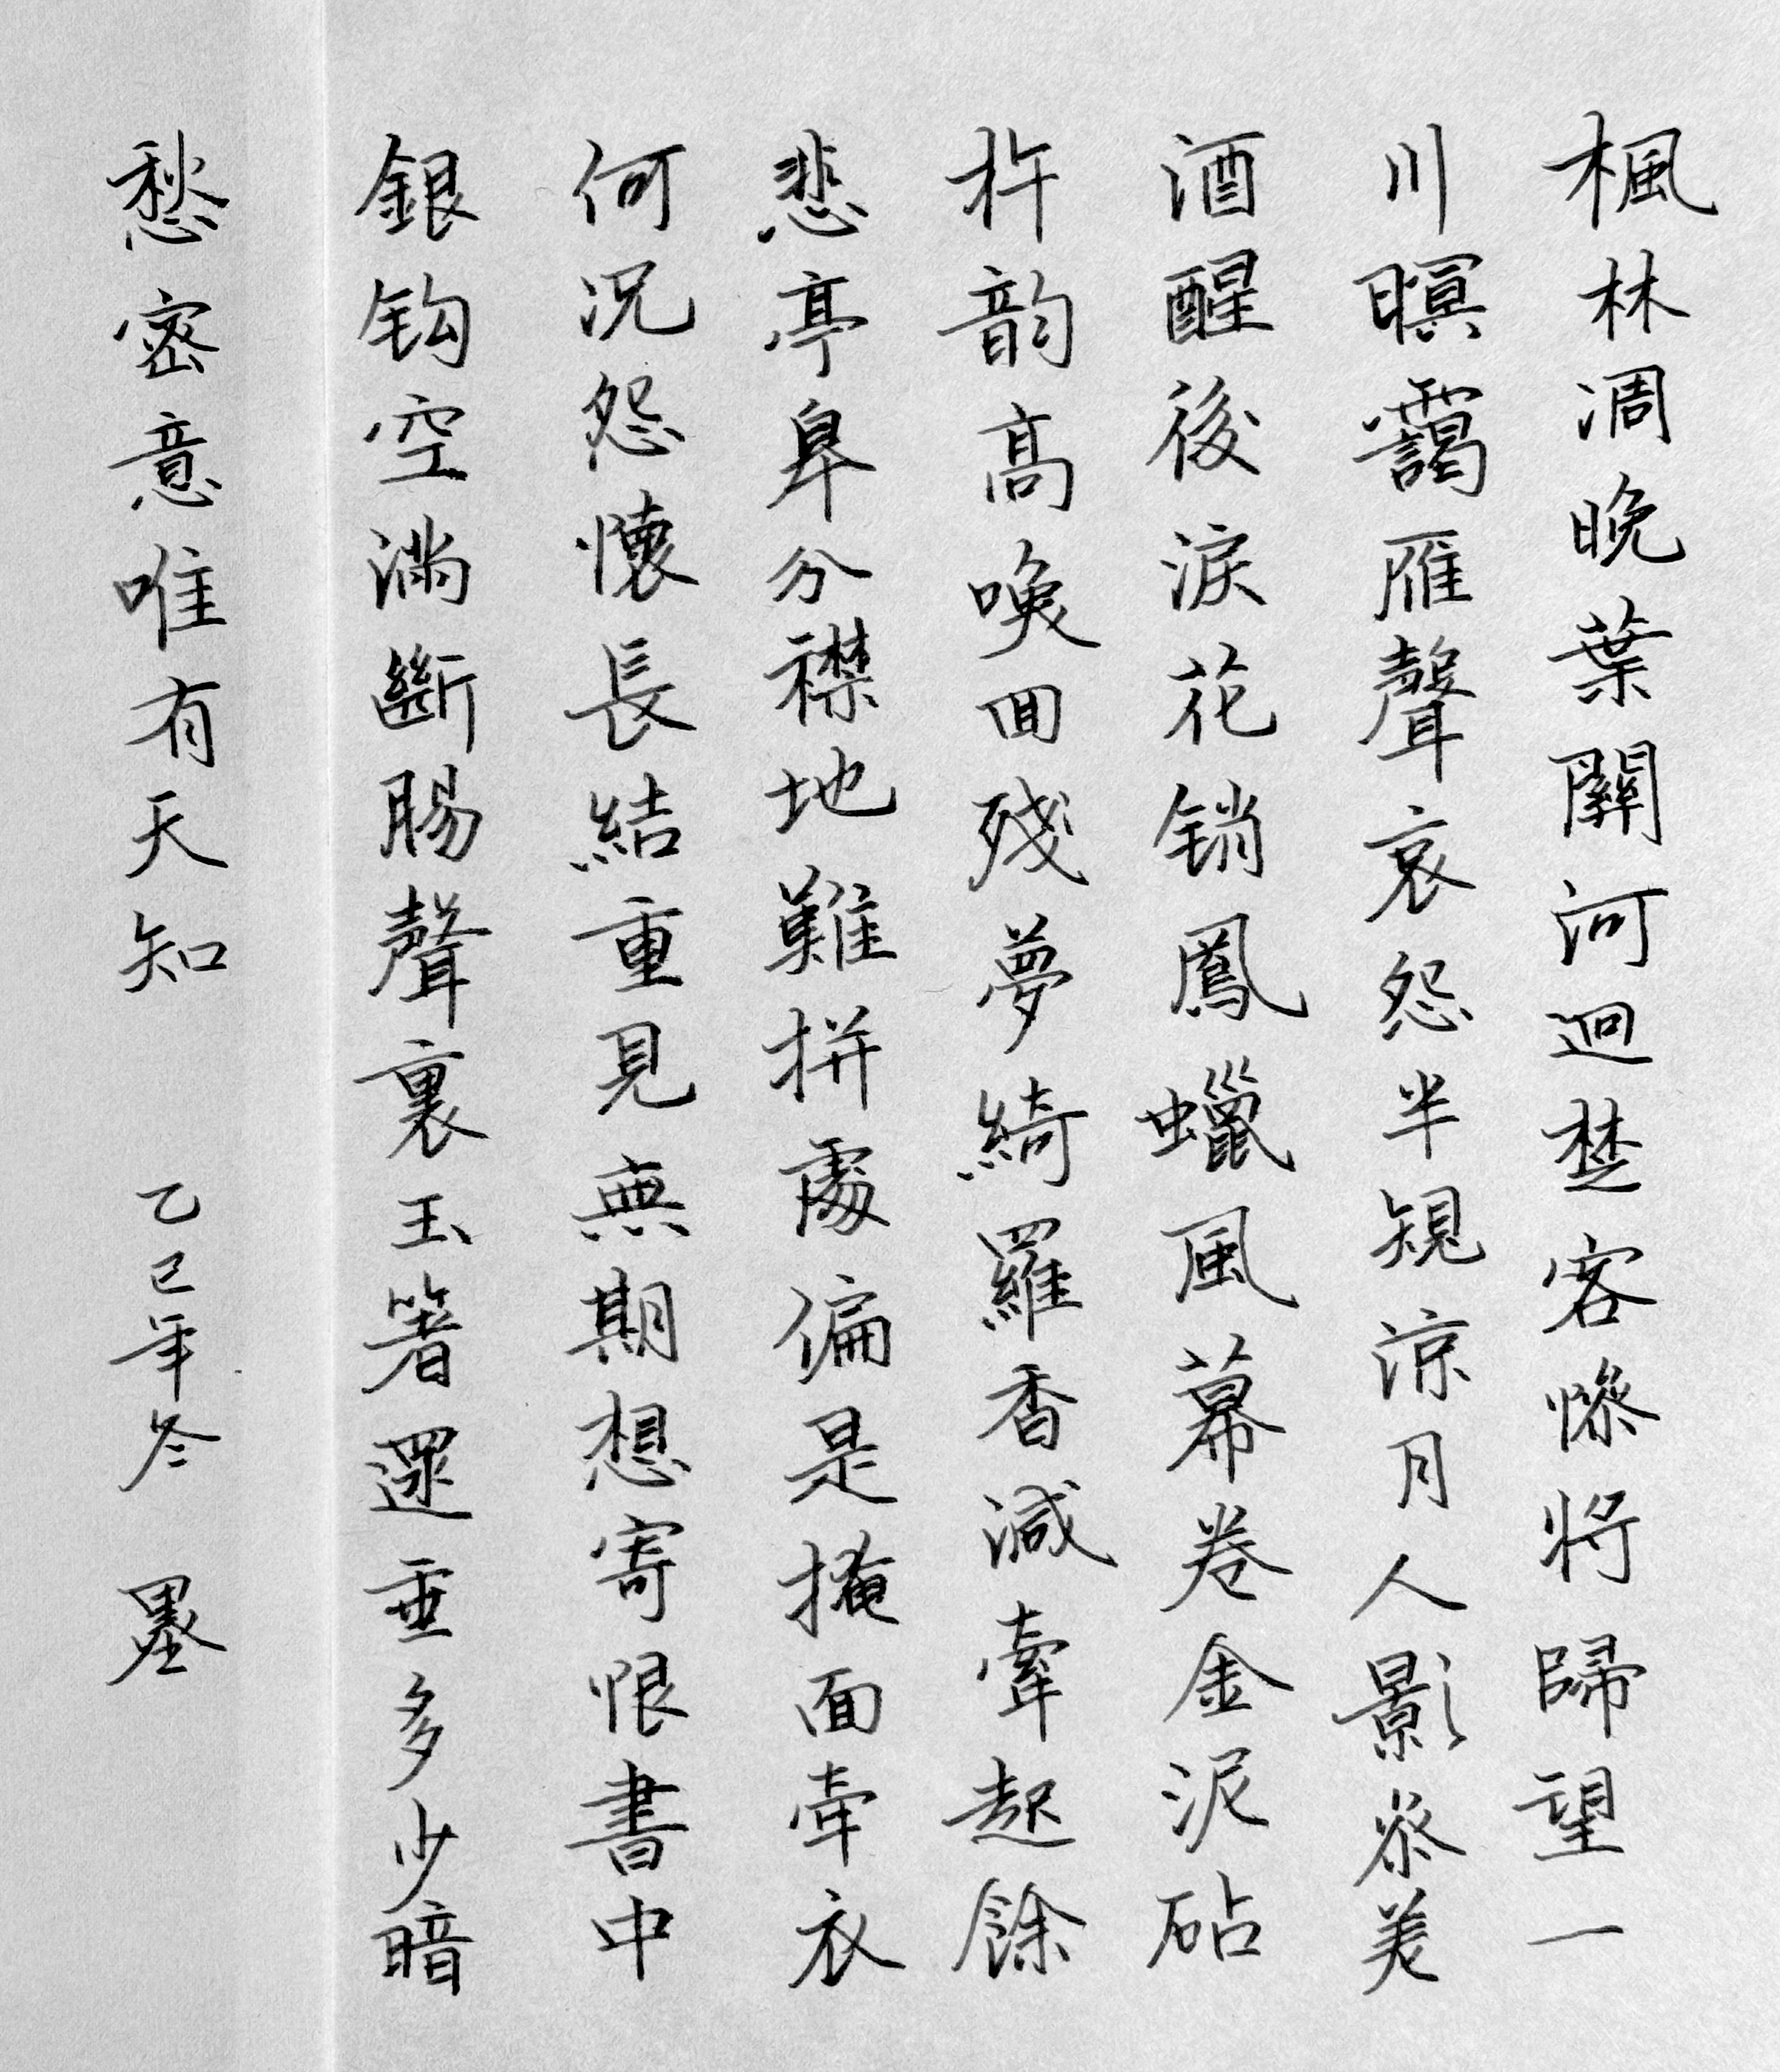 楓林凋晚葉關河迥楚客慘將歸望一
川暝靄雁聲哀怨半規涼月人影參差
酒醒後淚花销鳳蠟風幕卷金泥砧
杵韵高喚回殘夢綺羅香減牽起餘
悲亭皐分襟地難拼處偏是掩面牽衣
何況怨懷長結重見無期想寄恨書中
銀钩空滿斷腸聲裏玉箸還垂多少暗
愁密意唯有天知 乙巳年冬 墨